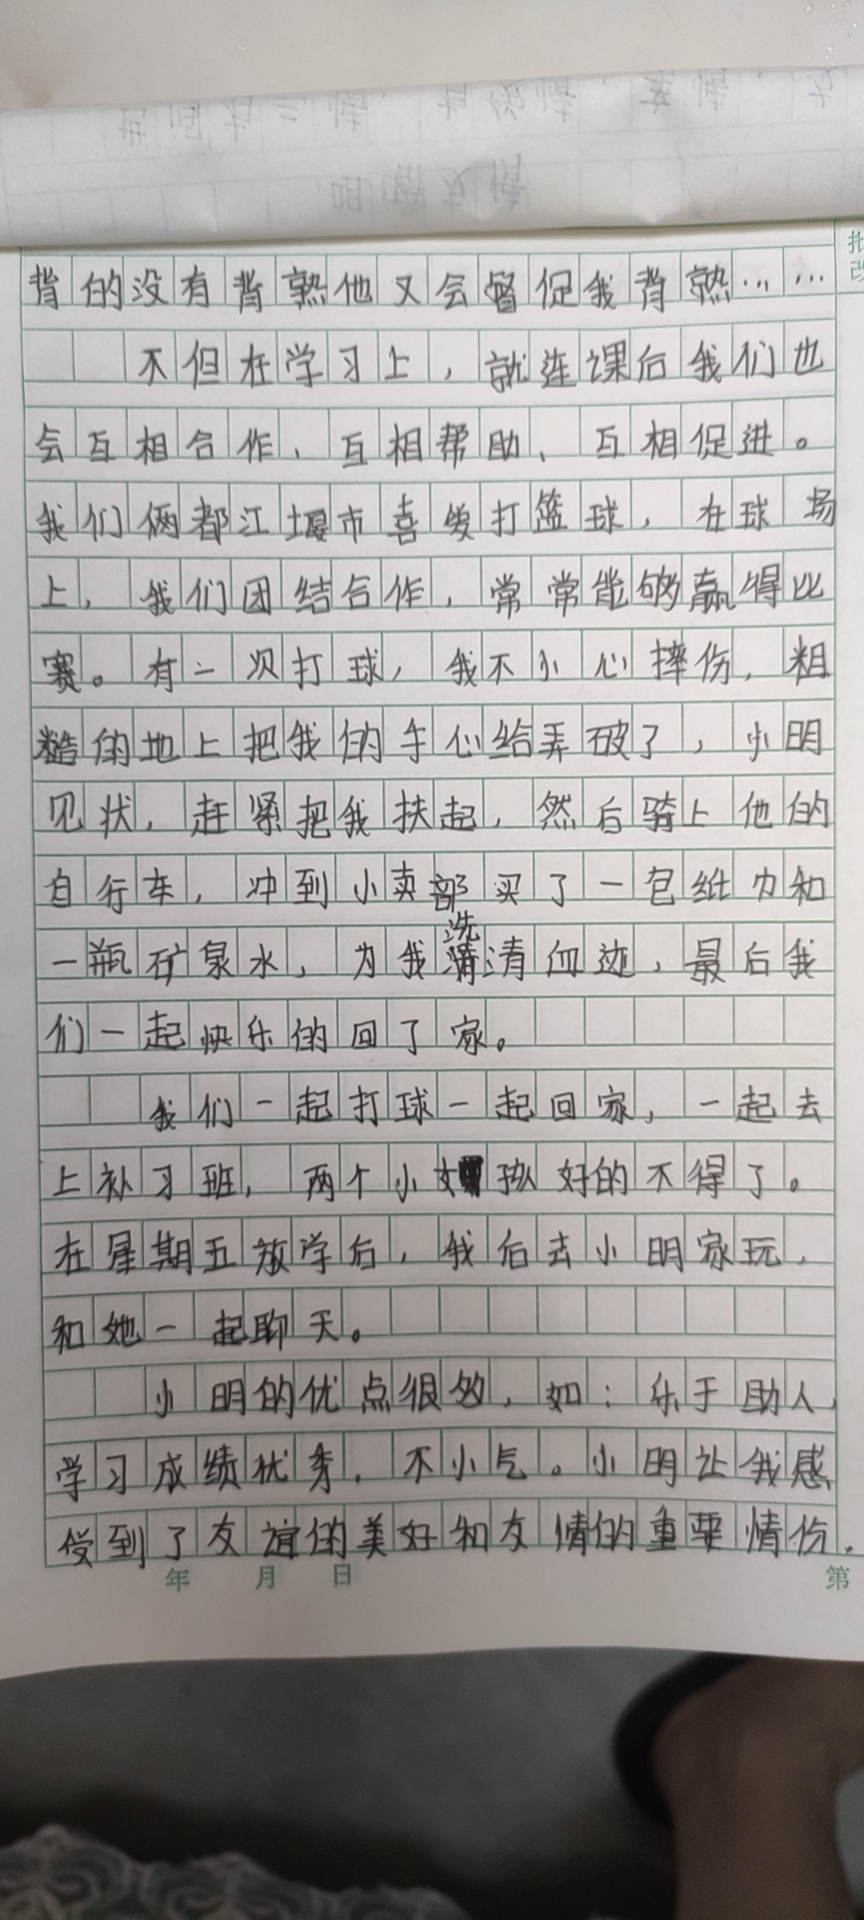 背的没有背熟他又会督促我背熟……
不但在学习上，就连课后我们也
会互相合作、互相帮助、互相促进。
我们俩都江堰市喜爱打篮球，在球场
上，我们团结合作，常常能够赢得比
赛。有一次打球，我不小心摔伤，粗
糙的地上把我的手心给弄破了，小明
见状，赶紧把我扶起，然后骑上他的
自行车，冲到小卖部买了一包纸巾和
一瓶矿泉水，为我洗清血迹，最后我
们一起快乐的回了家。
我们一起打球一起回家，一起去
上补习班，两个小孩好的不得了。
在星期五放学后，我后去小明家玩，
和她一起聊天。
小明的优点很多，如：乐于助人，
学习成绩优秀，不小气。小明让我感
受到了友谊的美好和友情的重要情伤.
年 月 日
第
批
改